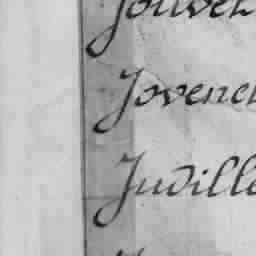 Jouven
Jovenc
Juville